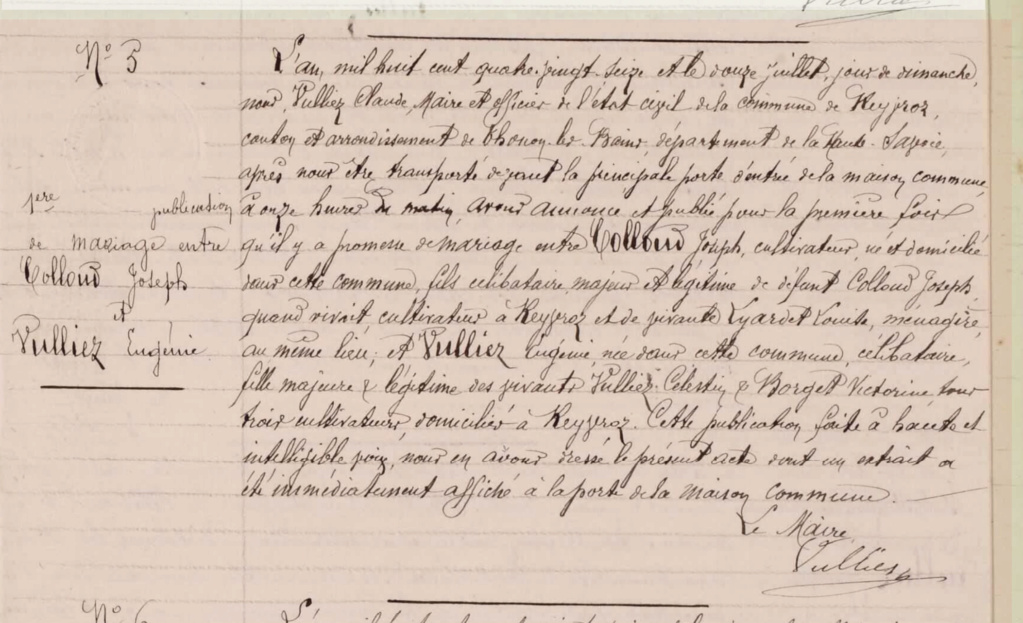 N° 5
L'an, mil huit cent quatre-vingt-seize et le douze juillet, jour de dimanche,
nous, Vulliez Claude, Maire et officier de l'état civil de la commune de Reyvroz,
canton et arrondissement de Thonon-les-Bains, département de la Haute-Savoie,
après nous être transporté devant la principale porte d'entrée de la maison commune,
à onze heures du matin, avons annoncé et publié pour la première fois
qu'il y a promesse de mariage entre Colloud Joseph, cultivateur, né et domicilié
dans cette commune, fils célibataire, majeur et légitime de défunt Colloud Joseph,
quand vivait cultivateur à Reyvroz et de vivante Lyardet Louise, ménagère,
au même lieu; et Vulliez Eugénie née dans cette commune, célibataire,
fille majeure & légitime des vivants Vulliez Célestin & Borget Victorine, tous
trois cultivateurs, domiciliés à Reyvroz. Cette publication faite à haute et
intelligible voix, nous en avons dressé le présent acte dont un extrait a
été immédiatement affiché à la porte de la maison commune.
Le Maire,
Vulliez
1ère publication
de mariage entre
Colloud Joseph
et
Vulliez Eugénie
N° 6